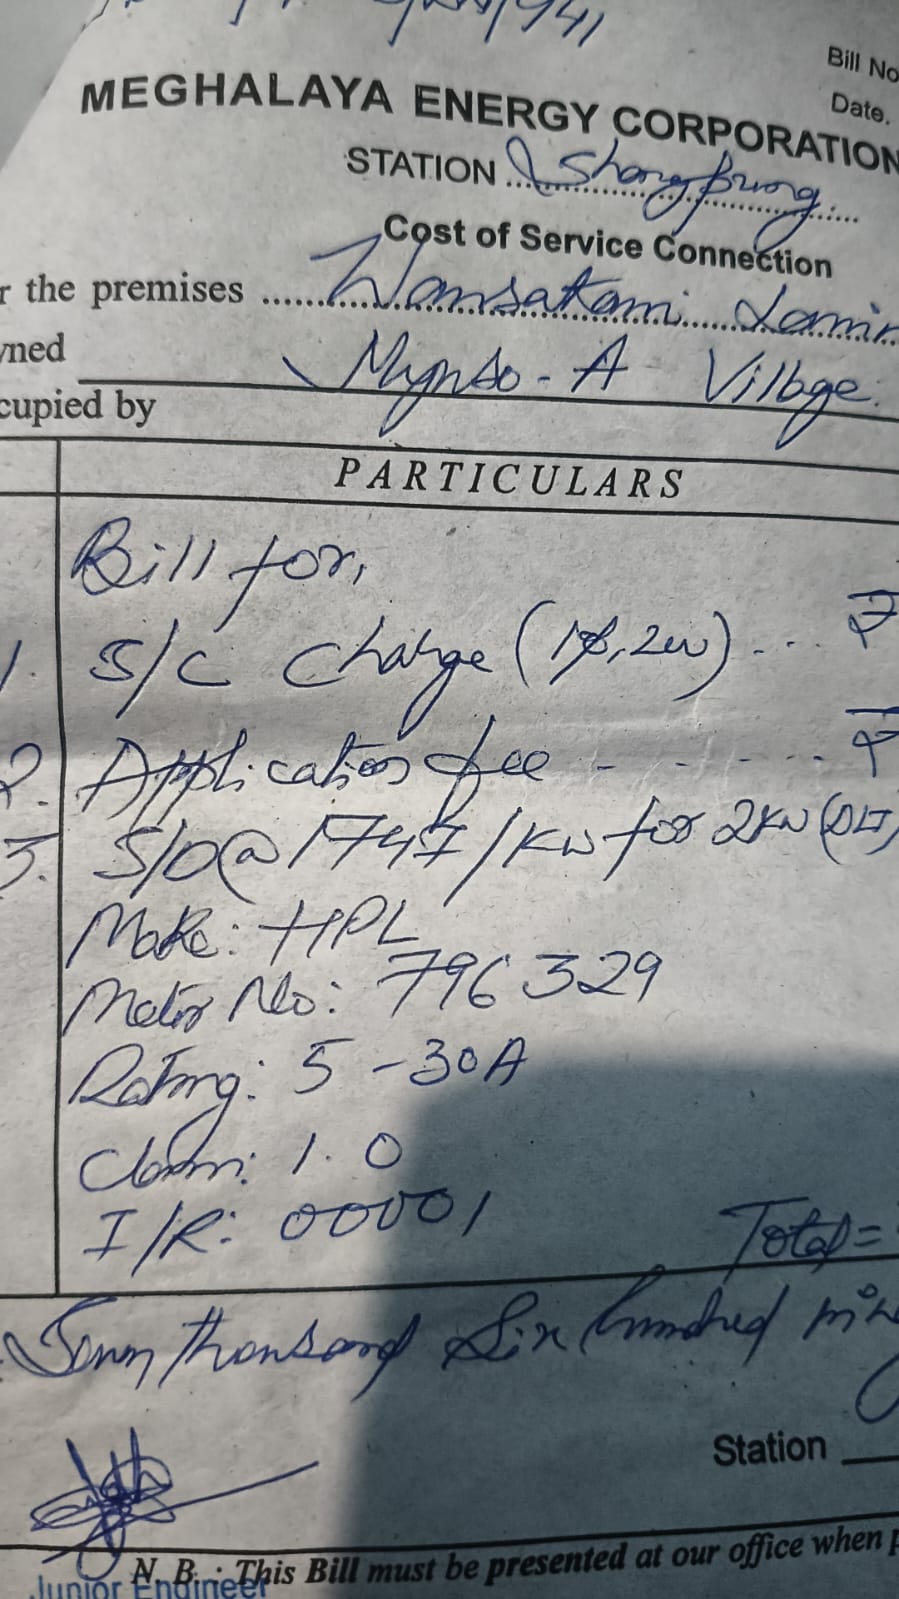 Bill No
Date.
MEGHALAYA ENERGY CORPORATION
STATION Shangpung
Cost of Service Connection
r the premises Wansakami Lamin
wned
Mynso - A Village.
cupied by
PARTICULARS
Bill for,
1. S/C Charge (1φ, 2w) ... ₹
2. Application fee - - - - ... ₹
3. S/D @ 1747/KW for 2KW (DLT)
Make: HPL
Meter No: 796329
Rating: 5 - 30A
Class: 1.0
I/R: 00001
Total =
thousand Six hundred nine
Station
N. B. : This Bill must be presented at our office when p
Junior Engineer